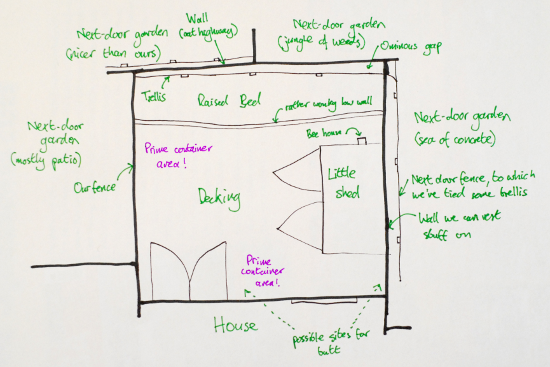 Next-door garden
(nicer than ours)
Wall
(cat highway)
Next-door garden
(jungle of weeds)
Ominous gap
Trellis
Raised Bed
rather wonky low wall
Next-door
garden
(mostly patio)
Our fence
Prime container
area!
Decking
Bee house
Little
shed
Next-door
garden
(sea of concrete)
Next door fence, to which
we've tied some trellis
Wall we can rest
stuff on
Prime
container
area!
House
possible sites for
butt